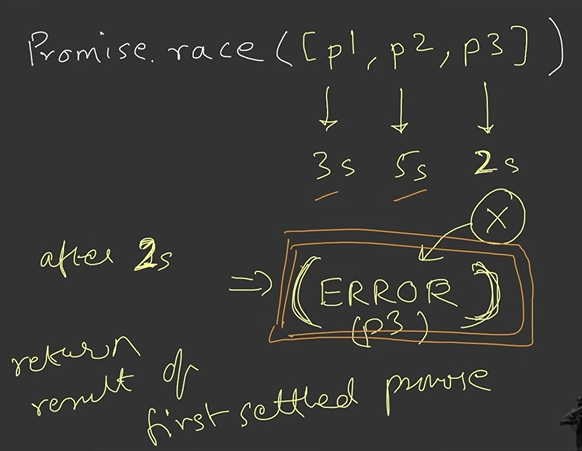 Promise.race([p1, p2, p3])
3s 5s 2s
X
after 2s => (ERROR)
(p3)
return
result of
first settled promise